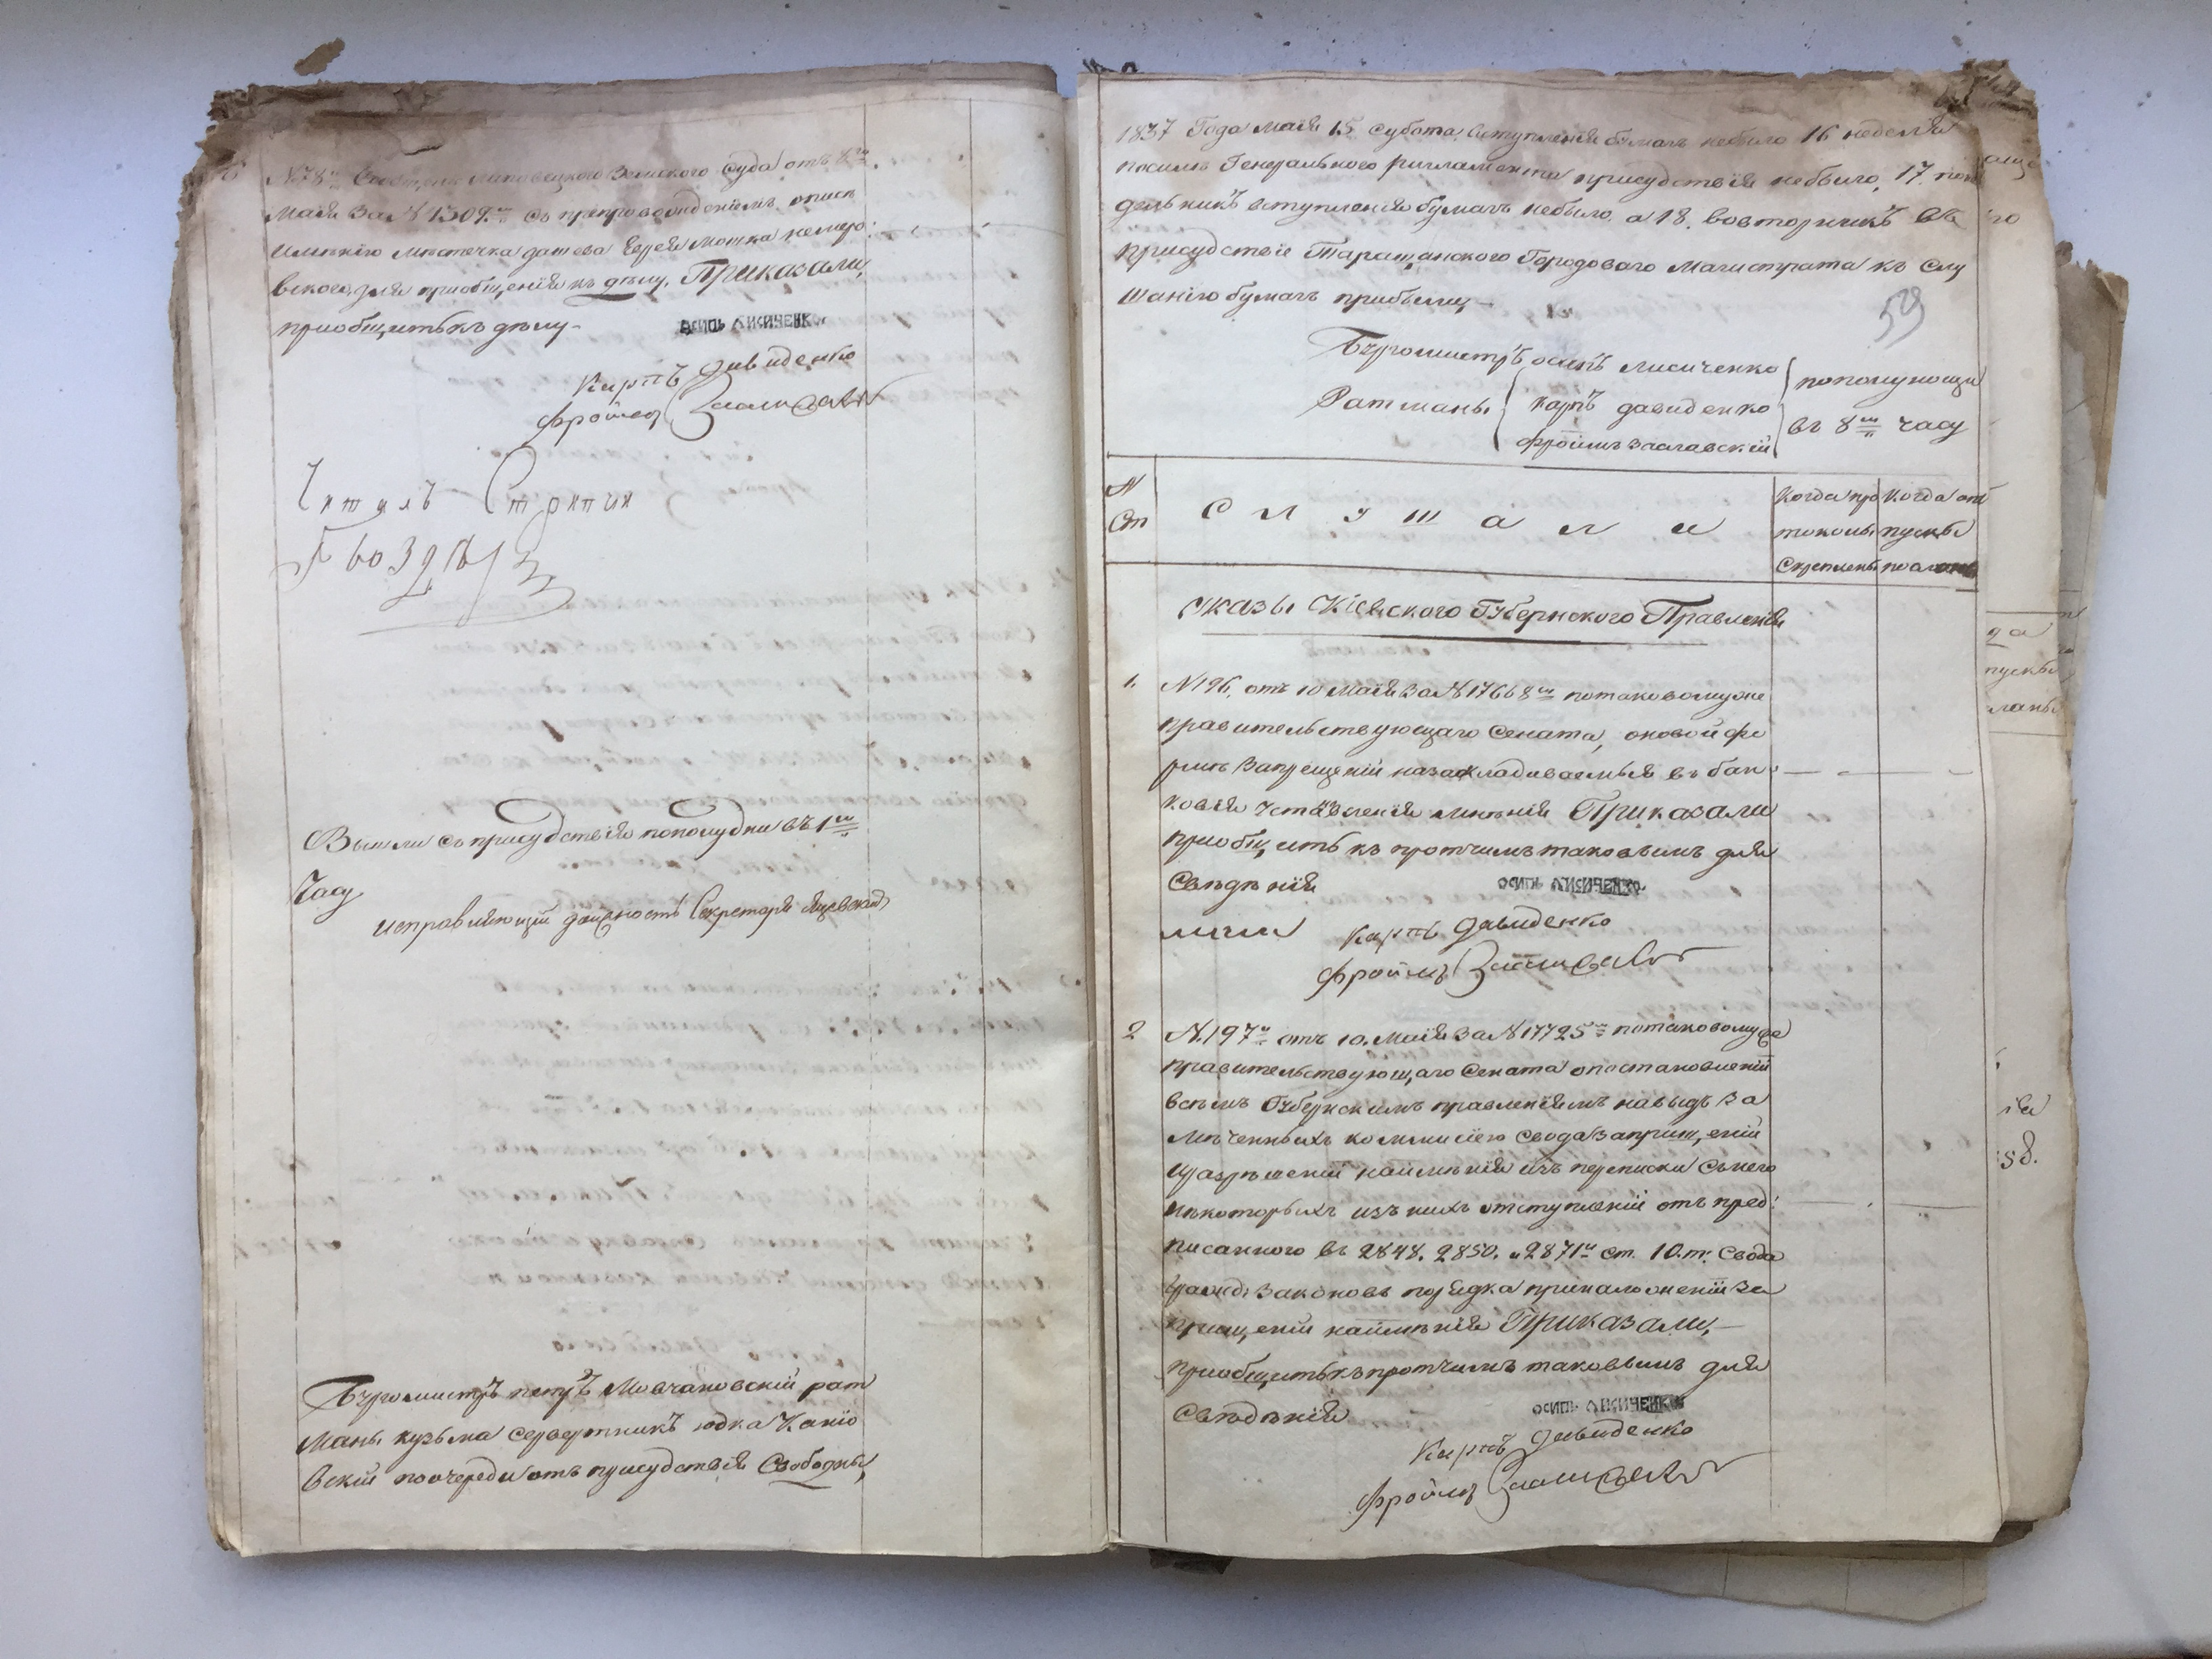 № 78. Липовецкого Земского Суда отъ
Маія За № 1309 съ препровожденіемъ описи
имѣнію мѣстечка дашева Еврея Мошка немиро
вского, для пріобщенія къ дѣлу. Приказали,
пріобщить къ дѣлу
осипъ лисиченко
Карпъ давиденко
Фроимъ
Читалъ Стряпчи
Гвоздев
Вышли съ присудствія пополудни въ 1 м
Часу
исправляющій должность Секретаря
Бургомистръ петръ Мовчановскій рат
маны кузьма юдка Каніо
вскій по очереди отъ присудствія Свободны,
1837 Года Маія 15 Субота вступленія бумагъ небыло 16 неделя
посилѣ Генеральнаго ригламента присудствія небыло, 17. поне
дельникъ вступленія бумагъ небыло, а 18. вовторникъ въ
присудствіе Таращанского Городоваго Магистрата къ слу
шанію бумагъ прибыли
59
Бургомистръ осипъ лисиченко
Ратманы карпъ давиденко
Фроимъ Заславскій
пополунощи
въ 8 м часу
№
Ст
С л у ш а л и
Когда про
токолы
Скреплены
Когда от
пуски
посланы
указы Кіевского Губернского Правленія
1. № 196. отъ 10 Маія За № 17668 м потаковомуже
правительствующаго Сената, оновой фо
рмѣ Запрещеній назакладиваемыя въ бан
ковія Установленія имѣнія Приказали
пріобщить къ протчимъ таковымъ для
Свѣдѣнія
осипъ лисиченко
Карпъ давиденко
Фроимъ
2 № 197 отъ 10. Маія За № 17725 потаковомуже
правительствующаго Сената опостановленіи
всѣмъ Губернскимъ правленіямъ навидъ За
мѣченныхъ коммисіею Свода Запрещ,еній
и разрѣшеній наимѣнія изъ переписки Снего
нѣкоторыхъ изъ нихъ отступленій отъ пред
писанного въ 2848. 2850. и 2871 ст. 10. т. Свода
гражд. Законовъ порядка приналоженіи За
прещ,еній наимѣнія Приказали,
пріобщить къ протчимъ таковымъ для
Свѣдѣнія
осипъ лисиченко
Карпъ давиденко
Фроимъ